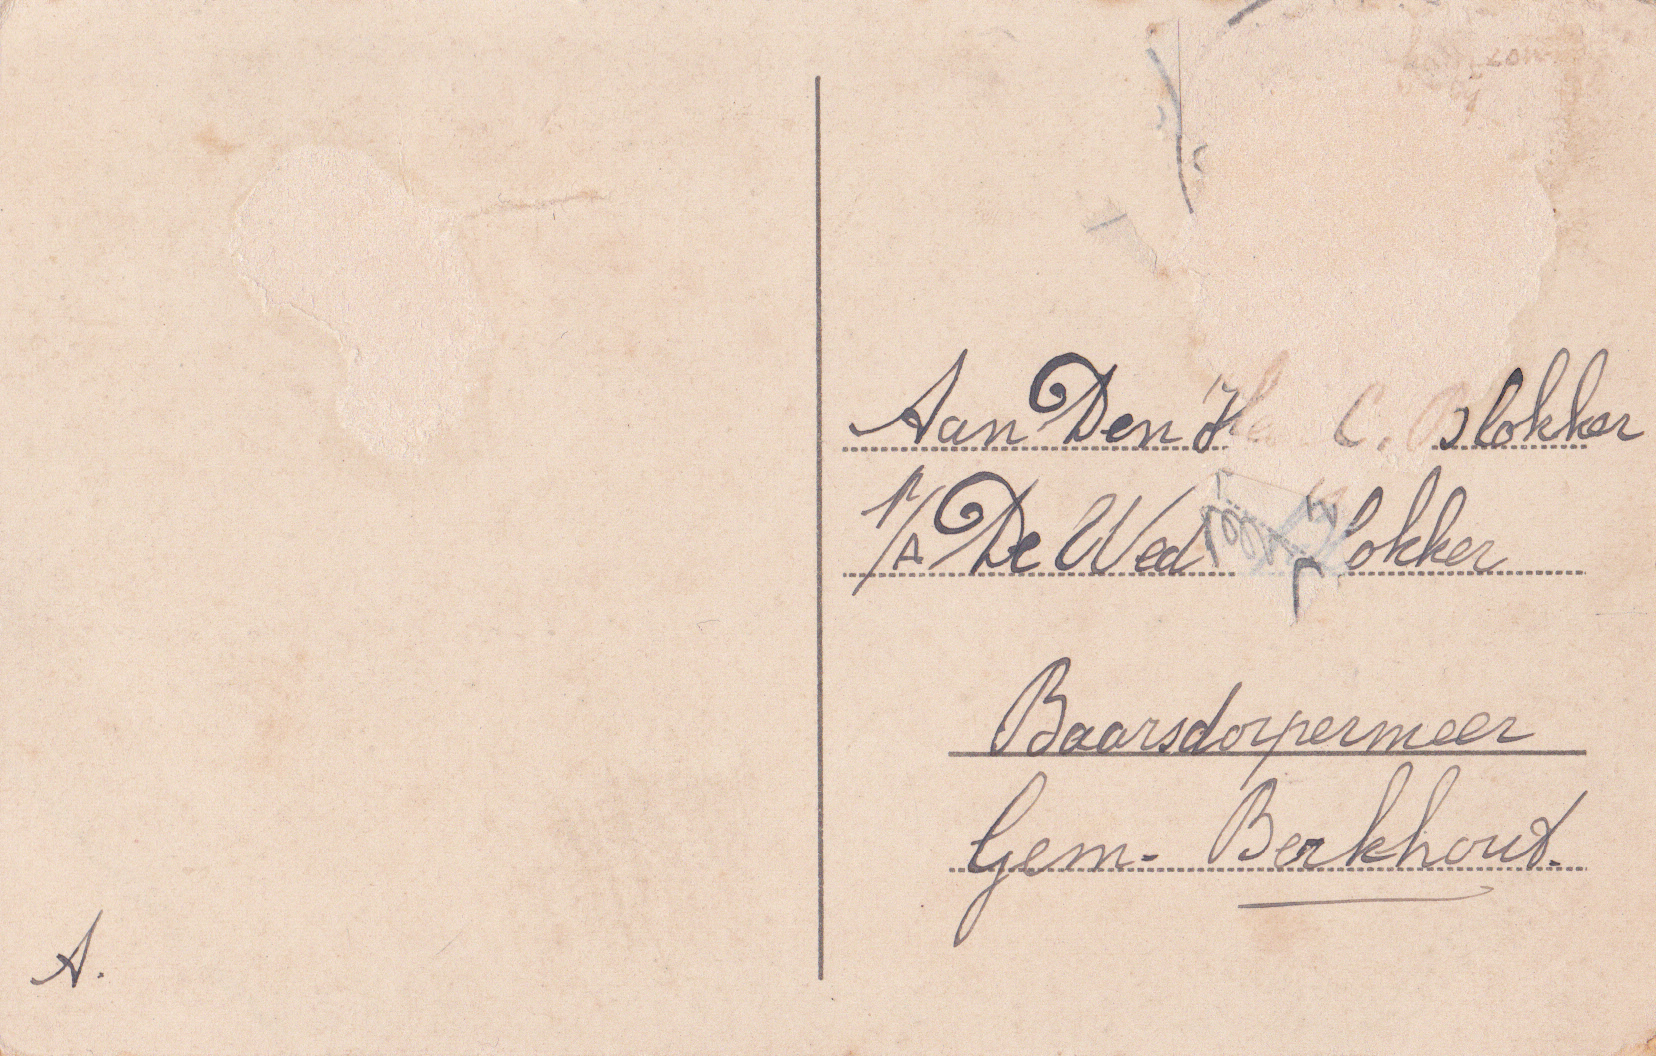 Aan Den Heer C. Blokker
P/A De Wed Blokker
Baarsdorpermeer
Gem- Berkhout.
A.